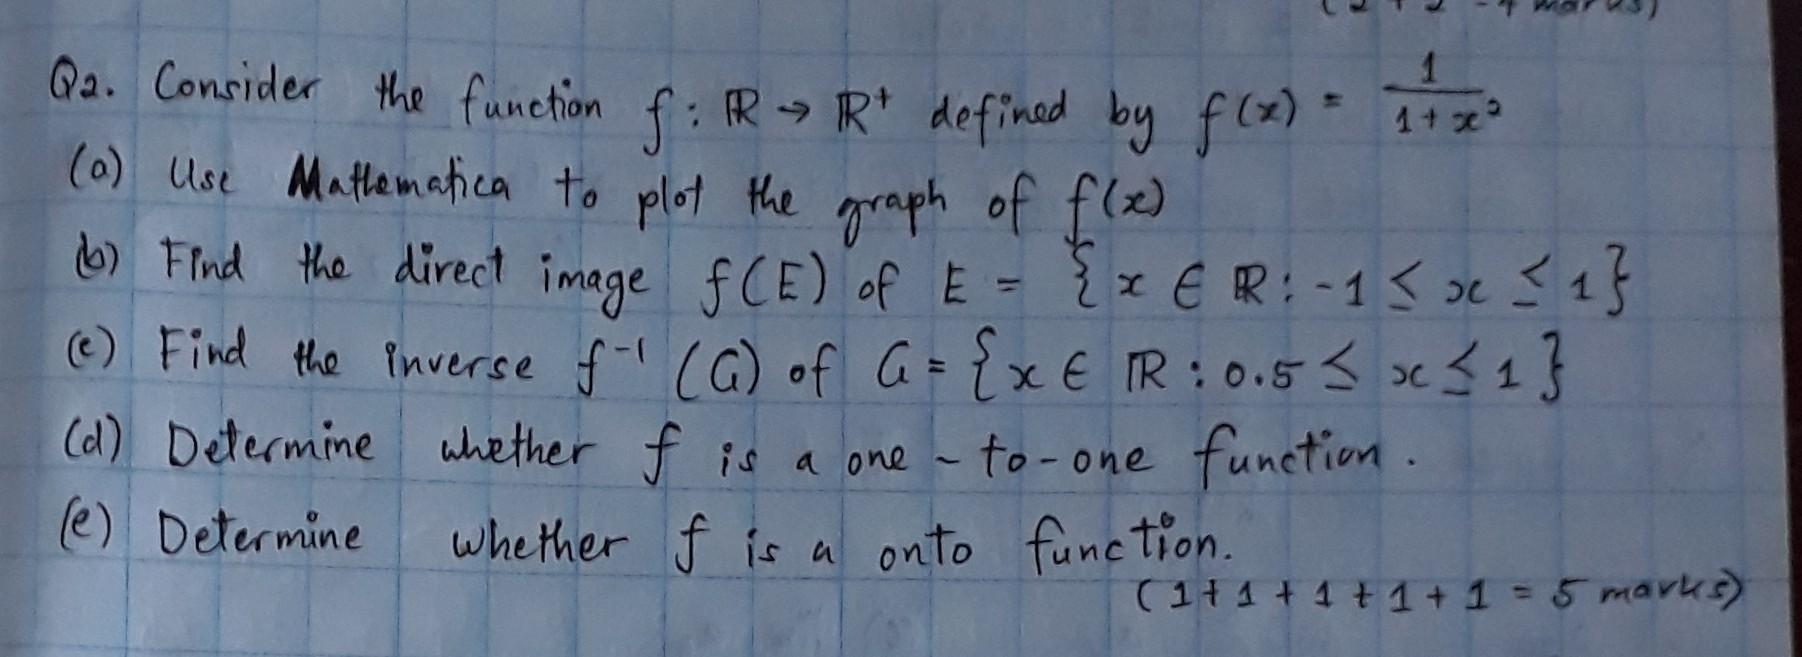 Q2. Consider the function f : ℝ → ℝ⁺ defined by f(x) = 1/(1+x²)
(a) Use Mathematica to plot the graph of f(x)
(b) Find the direct image f(E) of E = {x ∈ ℝ : -1 ≤ x ≤ 1}
(c) Find the inverse f⁻¹ (G) of G = {x ∈ ℝ : 0.5 ≤ x ≤ 1}
(d) Determine whether f is a one - to - one function.
(e) Determine whether f is a onto function.
(1 + 1 + 1 + 1 + 1 = 5 marks)